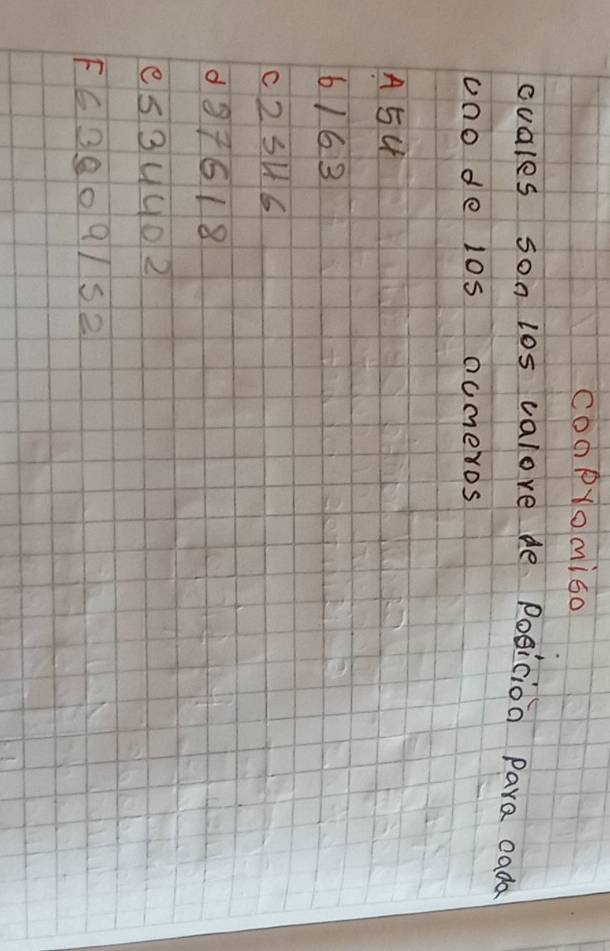 conpromiso
cuales son los valore de posición para cada
uno de los numeros
A 54
b 163
c 2546
d 97618
e 534402
F 63809152